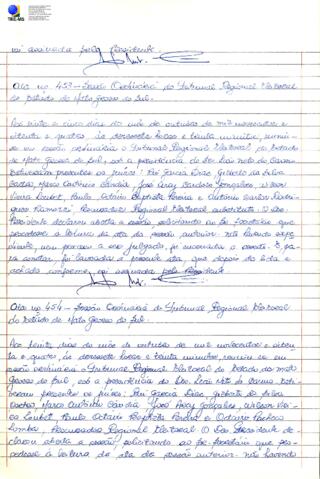 TRE-MS
vai assinada pelo Presidente.
Ata nº 453 – Sessão Ordinária do Tribunal Regional Eleitoral
do Estado de Mato Grosso do Sul.
Aos vinte e cinco dias do mês de outubro de mil novecentos e
oitenta e quatro, às dezessete horas e trinta minutos, reuniu-
se em sessão ordinária o Tribunal Regional Eleitoral do Estado
de Mato Grosso do Sul, sob a presidência do Des.
Estiveram presentes os juízes: Rui Garcia Dias, Gilberto da Silva
Castro, Marco Antônio Cândia, José Barbosa Gonçalves,
Paulo Octávio Baptista Pereira e Antônio Carlos
Procurador Regional Eleitoral substituto. O Des.
Presidente declarou aberta a sessão, solicitando ao Sr. Secretário que
procedesse a leitura da ata da sessão anterior. Não havendo expe-
diente, nem processo a ser julgado, foi encerrada a sessão. E, pa-
ra constar, foi lavrada a presente ata, que depois de lida e
achada conforme, vai assinada pelo Presidente.
Ata nº 454 – Sessão Ordinária do Tribunal Regional Eleitoral
do Estado de Mato Grosso do Sul.
Aos trinta dias do mês de outubro de mil novecentos e oiten-
ta e quatro, às dezessete horas e trinta minutos, reuniu-se em
sessão ordinária o Tribunal Regional Eleitoral do Estado de Mato
Grosso do Sul, sob a presidência do Des. Esti-
veram presentes os juízes: Rui Garcia Dias, Gilberto da Silva
Castro, Marco Antônio Cândia, José Gonçalves,
Paulo Octávio Baptista Pereira e Octávio Pacheco
Lomba, Procurador Regional Eleitoral. O Des. Presidente de-
clarou aberta a sessão, solicitando ao Sr. Secretário que pro-
cedesse à leitura da ata da sessão anterior. Não havendo